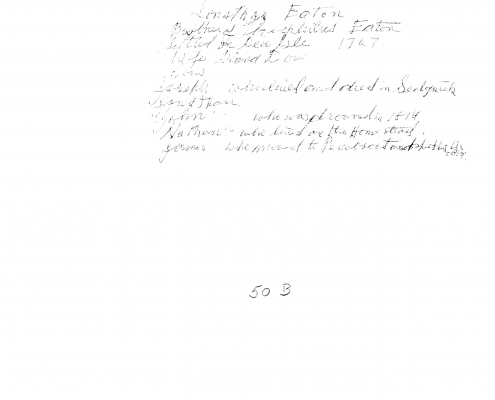 Jonathan Eaton
Brother of Theophilus Eaton
Settled on Deer Isle 1767
Wife
Sons
Joseph who lived and died in Sedgwick
Jonathan
John - who was drowned in 1814
Nathan - who lived on the Homestead.
James - who moved to Penobscot and
50 B